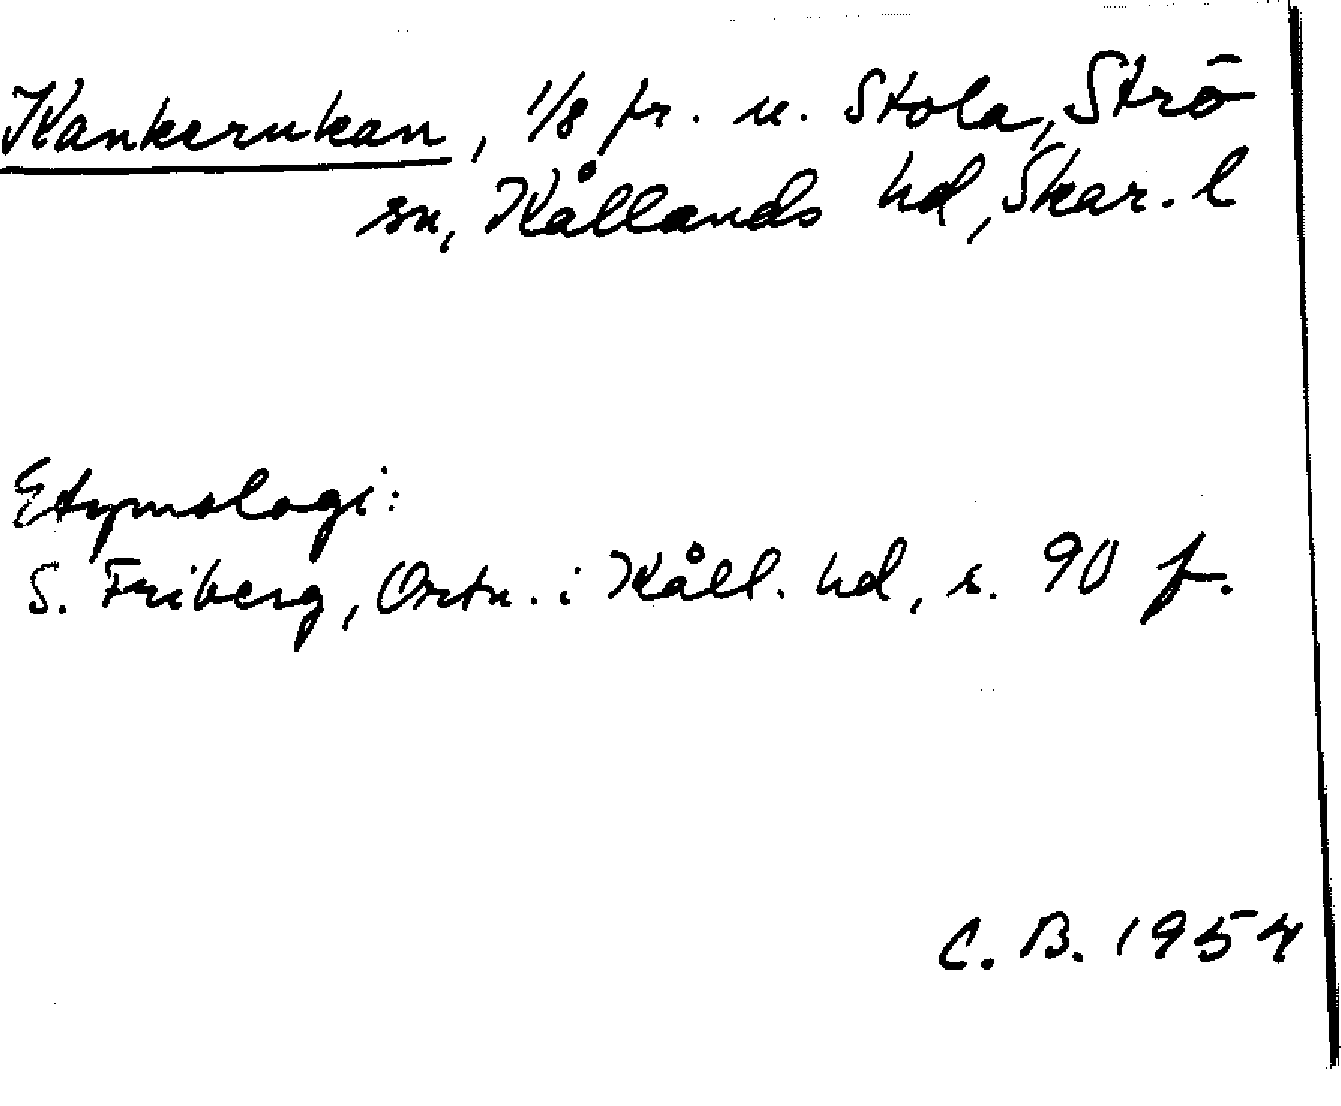 Kankerukan, 1/8 fr. u. Stola, Strö
sn, Kållands hd, Skar. l
Etymologi:
S. Friberg, Ortn. i Kåll. hd, s. 90 f.
C. B. 1954